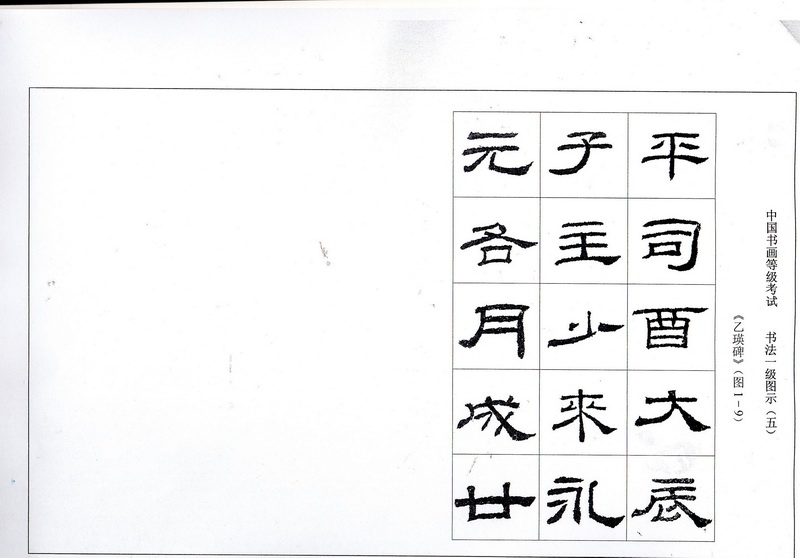 中国书画等级考试 书法一级图示（五）
《乙瑛碑》（图1-9）
平司酉大辰
子主少来永
元各月成廿